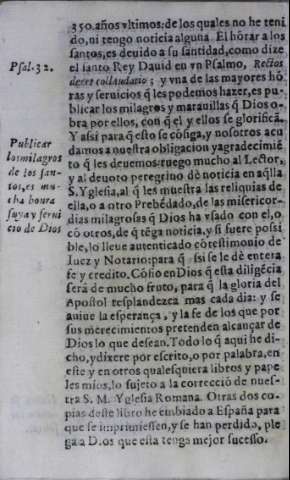 350.años vltimos: de los quales no he teni
do, ni tengo noticia alguna El hõrar a los
santos, es deuido a su santidad, como dize
el santo Rey Dauid en vn Psalmo, Rectos
decet collaudatio; y vna de las mayores hõ
ras y seruicios q̃ les podemos hazer, es pu-
blicar los milagros y marauillas q̃ Dios o-
bra por ellos, con q̃ el y ellos se glorificã.
Y assi para q̃ esto se cõsiga, y nosotros acu
damos a nuestra obligacion y agradecimiẽ
to q̃ les deuemos: ruego mucho al Lector,
y al deuoto peregrino dè noticia en aq̃lla
S. Yglesia, al q̃ les muestra las reliquias de
ella, o a otro Prebẽdado, de las misericor-
dias milagrosas q̃ Dios ha vsado con el, o
cõ otros, de q̃ tẽga noticia, y si fuere possi
ble, lo lleue autenticado cõ testimonio de
Iuez y Notario: para q̃ assi se le dè entera
fe y credito. Cõfio en Dios q̃ esta diligẽcia
serà de mucho fruto, para q̃ la gloria del
Apostol resplandezca mas cada dia: y se
auiue la esperança, y la fe de los que por
sus merecimientos pretenden alcançar de
Dios lo que desean. Todo lo q̃ aqui he di-
cho, y dixere por escrito, o por palabra, en
este y en otros qualesquiera libros y pape
les mios, lo sujeto a la correcciõ de nues-
tra S. M. Yglesia Romana. Otras dos co-
pias deste libro he embiado a España para
que se imprimiessen, y se han perdido, ple
ga a Dios que esta tenga mejor sucesso.
Psal. 32.
Publicar
los milagros
de los san-
tos, es mu-
cha honra
suya y serui
cio de Dios